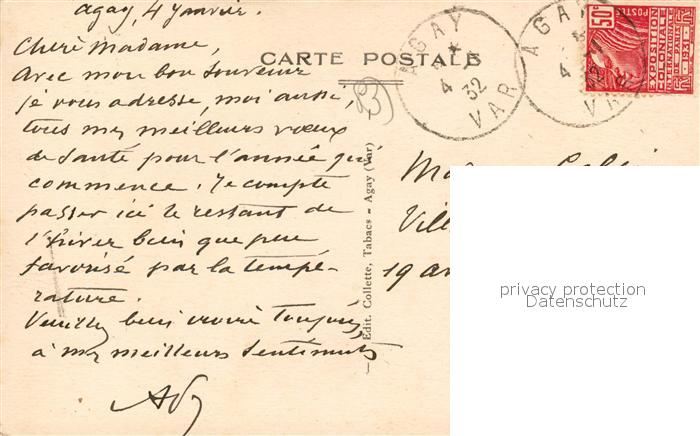 Agay, 4 Janvier.
Chère Madame,
Avec mon bon souvenir
je vous adresse, moi aussi,
tous mes meilleurs vœux
de Santé pour l'année qui
commence. Je compte
passer ici le restant de
l'hiver bien que peu
favorisé par la tempé-
rature.
Veuillez bien croire toujours
à mes meilleurs Sentiments
CARTE POSTALE
83
Edit. Collette, Tabacs - Agay (Var)
AGAY
4
32
VAR
AGAY
4
32
VAR
50c
POSTES
EXPOSITION
COLONIALE
INTERNATIONALE
PARIS 1931
19
privacy protection
Datenschutz